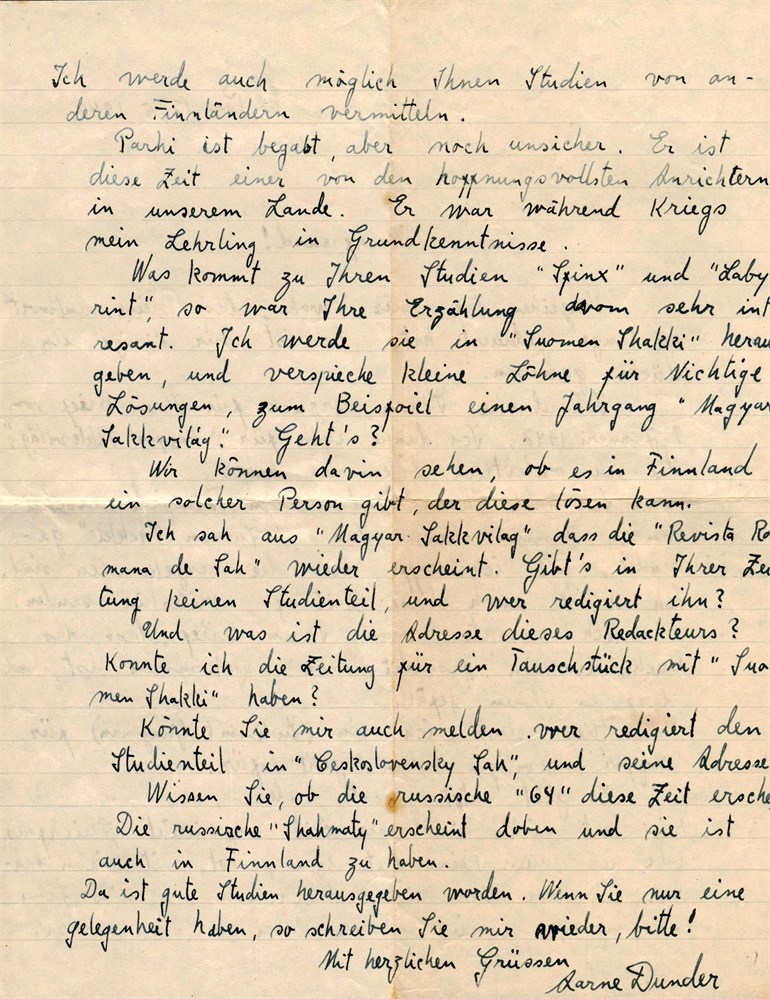 Ich werde auch möglich Ihnen Studien von an-
deren Finnländern vermitteln.
Parhi ist begabt, aber noch unsicher. Er ist
diese Zeit einer von den hoffnungsvollsten Anrichtern
in unserem Lande. Er war während Kriegs
mein Lehrling in Grundkenntnisse.
Was kommt zu Ihren Studien "Spinx" und "Laby
rint", so war Ihre Erzählung davom sehr int
resant. Ich werde sie in "Suomen Shakki" herau
geben, und verspieche kleine Löhne für Nichtige
Lösungen, zum Beispoiel einen Jahrgang "Magyar
Sakkvilág." Geht's?
Wir können davin sehen, ob es in Finnland
ein solcher Person gibt, der diese lösen kann.
Ich sah aus "Magyar Sakkvilag" dass die "Revista Ro
mana de Sah" wieder erscheint. Gibt's in Ihrer Zei
tung keinen Studienteil, und wer redigiert ihn?
Und was ist die Adresse dieses Redackteurs?
Konnte ich die Zeitung für ein Tauschstück mit "Suo
men Shakki" haben?
Könnte Sie mir auch melden wer redigiert den
Studienteil in "Ceskoslovensky Sah", und seine Adresse
Wissen Sie, ob die russische "64" diese Zeit ersche
Die russische "Shahmaty" erscheint doben und sie ist
auch in Finnland zu haben.
Da ist gute Studien herausgegeben worden. Wenn Sie nur eine
gelegenheit haben, so schreiben Sie mir wieder, bitte!
Mit herzlichen Grüssen
Aarne Dunder